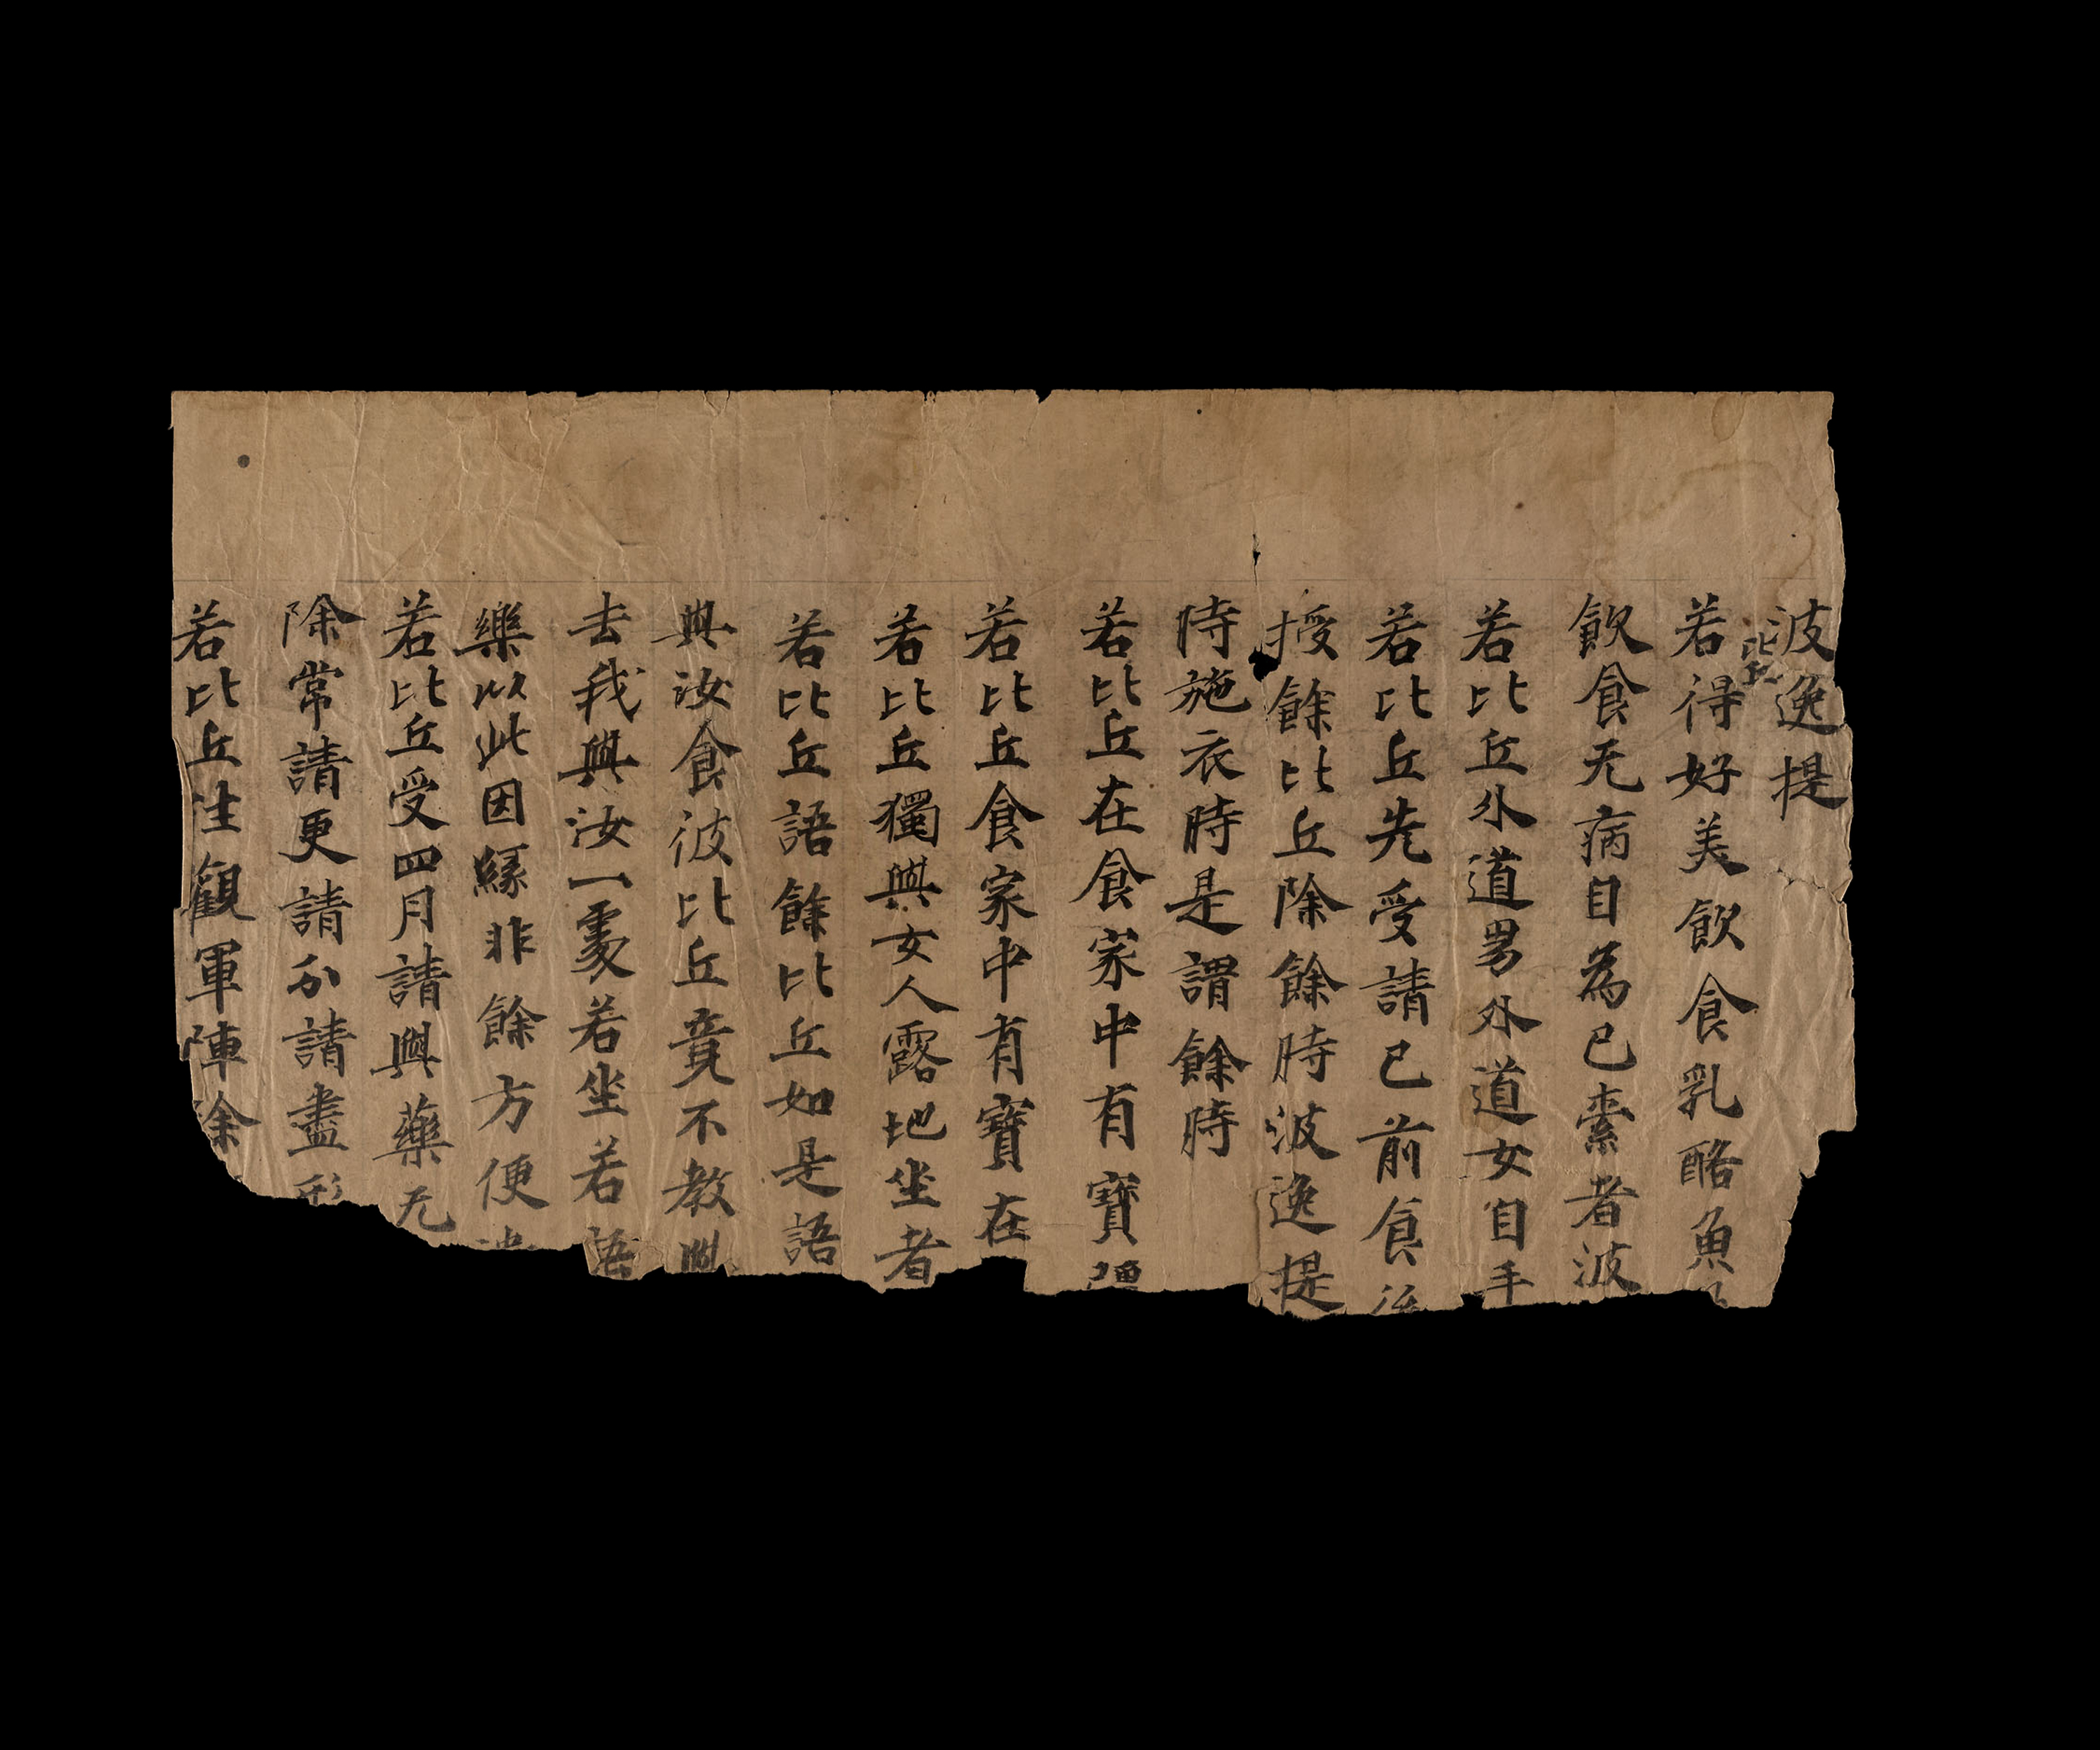 波逸提
若比丘得好美飲食乳酪魚
飲食无病自為己索者波
若比丘外道男外道女自手
若比丘先受請已前食後
授餘比丘除餘時波逸提
時施衣時是謂餘時
若比丘在食家中有寶強
若比丘食家中有寶在
若比丘獨與女人露地坐者
若比丘語餘比丘如是語
與汝食彼比丘竟不教與
去我與汝一處若坐若語
樂以此因緣非餘方便
若比丘受四月請與藥无
除常請更請分請盡形
若比丘往觀軍陣除